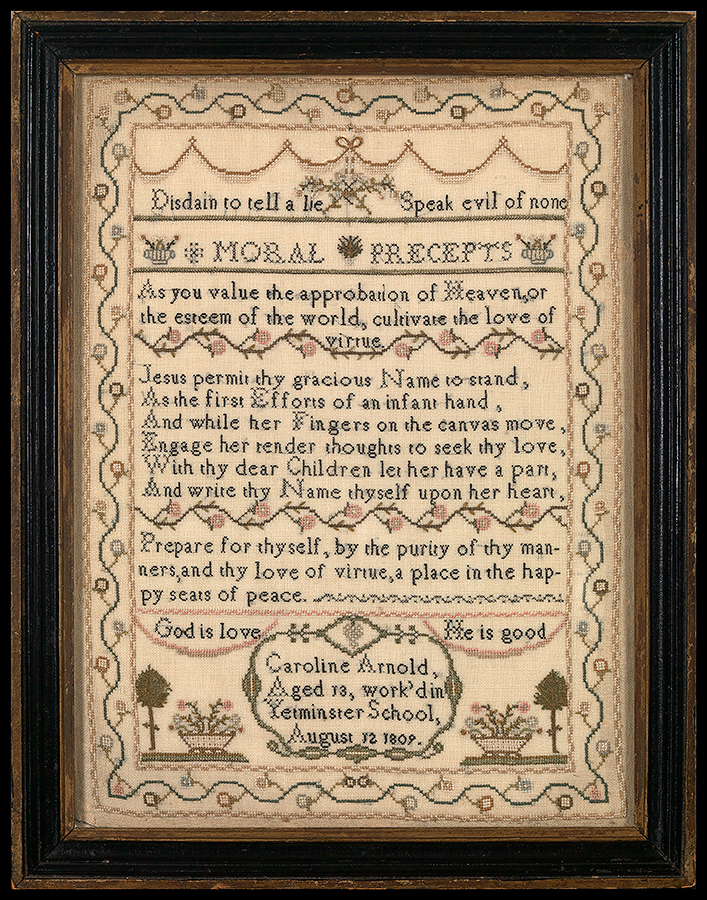 Disdain to tell a lie Speak evil of none
MORAL PRECEPTS
As you value the approbation of Heaven,or
the esteem of the world, cultivate the love of
virtue
Jesus permit thy gracious Name to stand,
As the first Efforts of an infant hand,
And while her Fingers on the canvas move,
Engage her tender thoughts to seek thy love,
With thy dear Children let her have a part,
And write thy Name thyself upon her heart,
Prepare for thyself, by the purity of thy man-
ners,and thy love of virtue,a place in the hap-
py seats of peace.
God is love He is good
Caroline Arnold,
Aged 13, work'd in
Yetminster School,
August 12 1809.